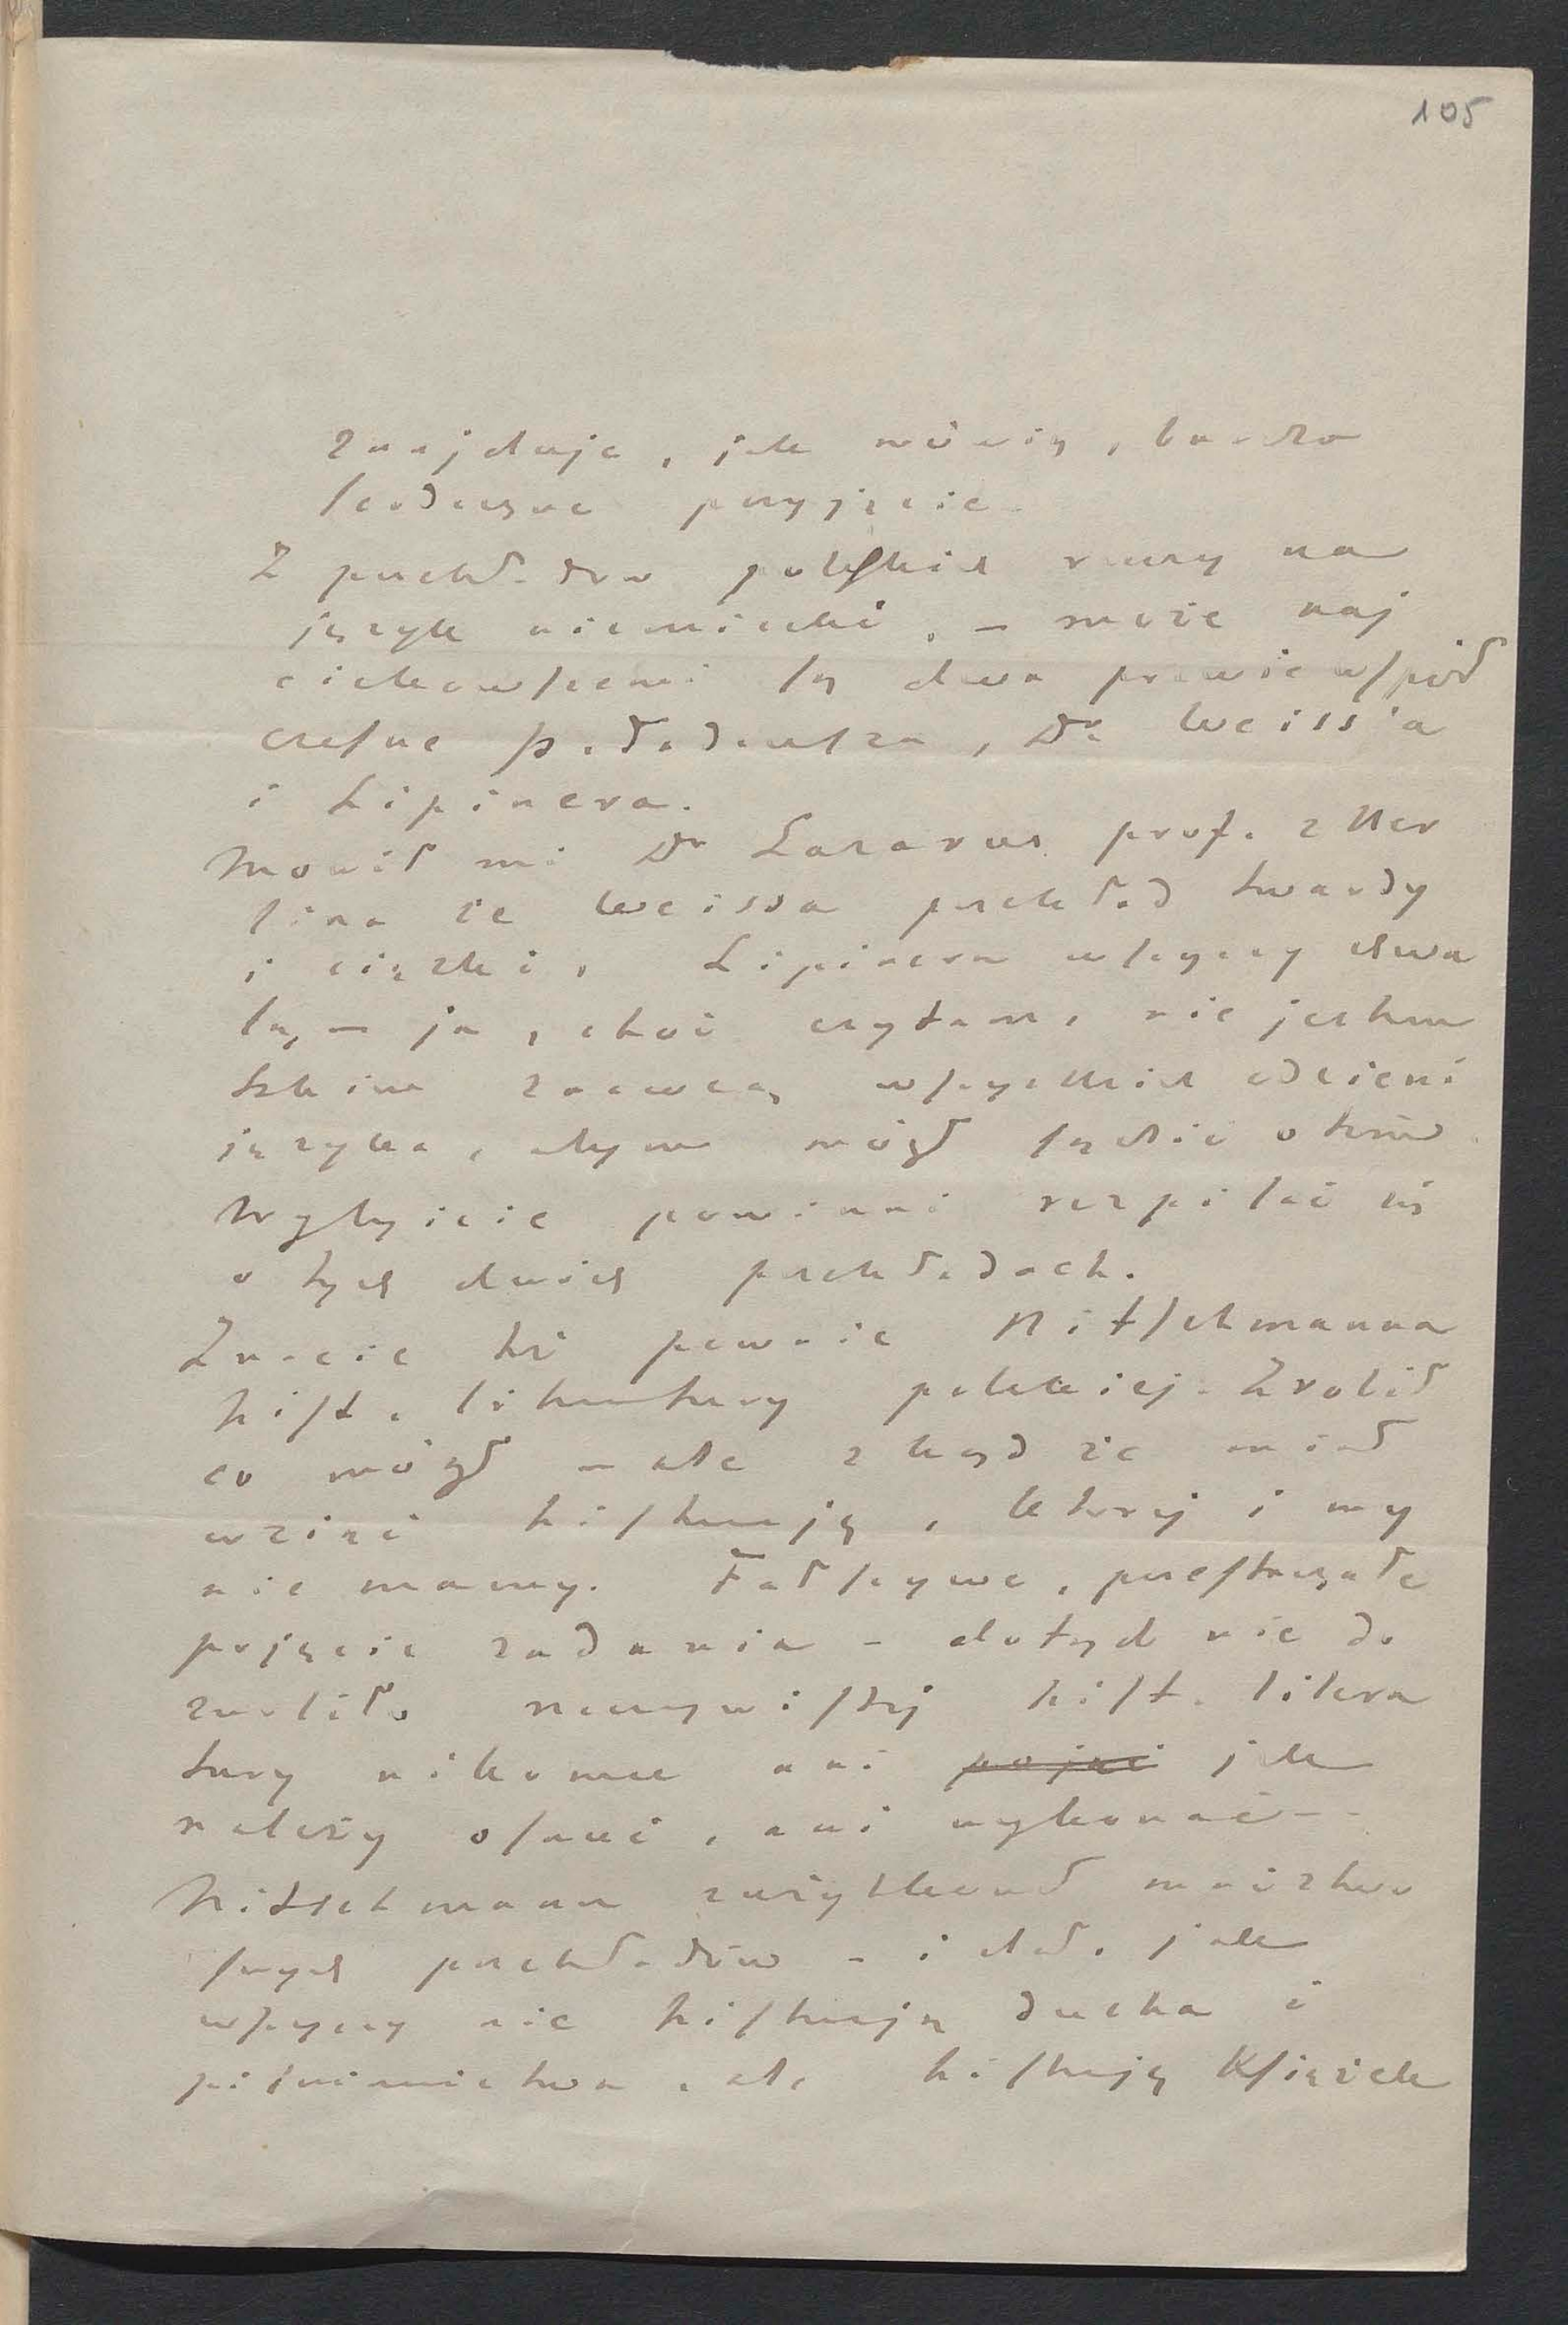 105
znajduje, jak mówią, bardzo
serdeczne przyjęcie.
Z przekładów polskich rzeczy na
język niemiecki, – może naj
ciekawszemi są dwa prawie współ
czesne p. Tadeusza, Dra Weiss'a
i Lipinera.
Mówił mi Dr Lazarus prof. z Ber
lina że Weissa przekład twardy
i ciężki, Lipinera wszyscy chwa
lą, – ja, choć czytam, nie jestem
takim znawcą wszystkich odcieni
języka, abym mógł sądzić o tem.
Wybyście powinni rozpisać się
o tych dwóch przekładach.
Znacie też pewnie Nitschmanna
hist. literatury polskiej. Zrobił
co mógł – ale zkąd że miał
wziąć historję, której i my
nie mamy. Fałszywe, przestarzałe
pojęcie zadania – dotąd nie do
zwoliło rzeczywistej hist. litera
tury nikomu ani pojąć jak
należy osnuć, ani wykonać –
Nitschmann zużytkował mnóztwo
swych przekładów – i dał, jak
wszyscy nie historję ducha i
piśmiennictwa, ale historję Książek